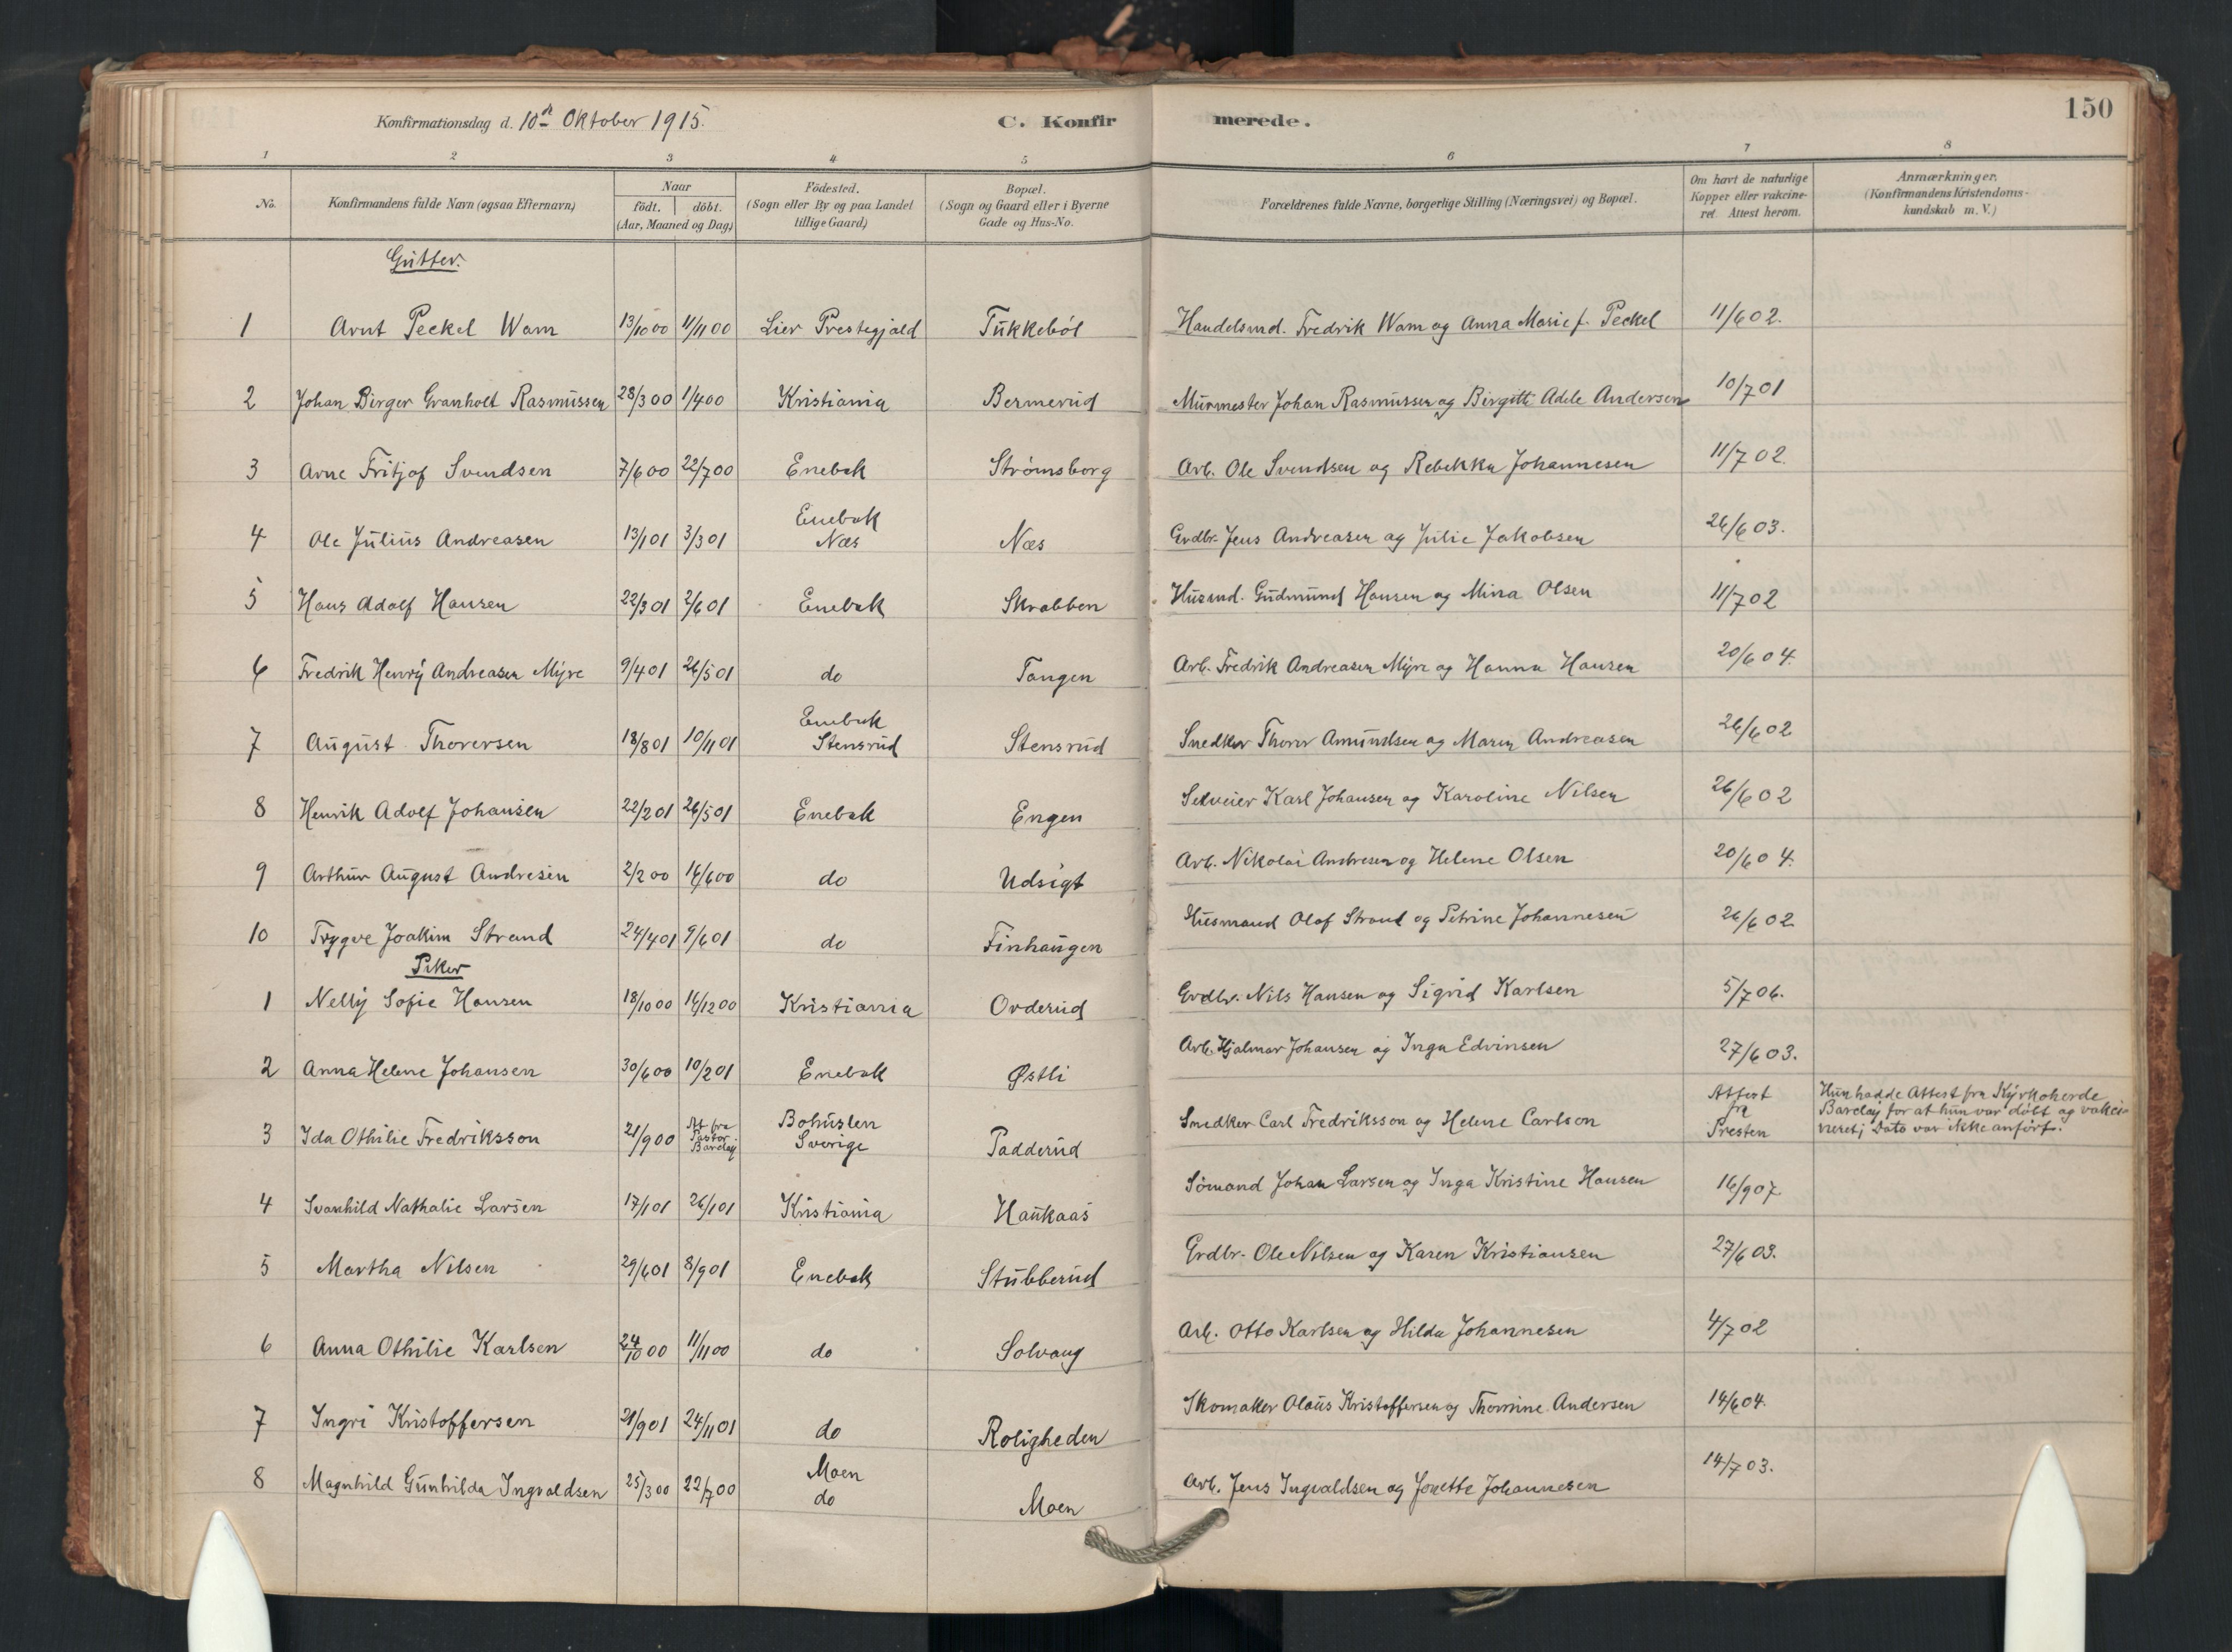 Konfirmationsdag d. 10de Oktober 1915.
C. Konfirmerede.
150
1 2 3 4 5 6 7 8
No.
Konfirmandens fulde Navn (ogsaa Efternavn)
Naar
födt. | döbt.
(Aar, Maaned og Dag)
Födested.
(Sogn eller By og paa Landet
tillige Gaard)
Bopæl.
(Sogn og Gaard eller i Byerne
Gade og Hus-No.
Forældrenes fulde Navne, borgerlige Stilling (Næringsvei) og Bopæl.
Om havt de naturlige
Kopper eller vakcine-
ret. Attest herom.
Anmærkninger.
(Konfirmandens Kristendoms-
kundskab m. V.)
Gutter.
1 Arnt Peckel Wam 13/10 00 11/11 00 Lier Prestegjald Tukkeböl Handelsmd. Fredrik Wam og Anna Marie f. Peckel 11/6 02.
2 Johan Birger Granholt Rasmussen 28/3 00 1/4 00 Kristiania Bermerud Murmester Johan Rasmussen og Birgitte Adele Andersen 10/7 01
3 Arne Fritjof Svendsen 7/6 00 22/7 00 Enebak Strømsborg Arb. Ole Svendsen og Rebekka Johannesen 11/7 02.
4 Ole Julius Andreasen 13/1 01 3/3 01 Enebak Næs Næs Grdbr. Jens Andreasen og Julie Jakobsen 26/6 03.
5 Hans Adolf Hansen 22/3 01 2/6 01 Enebak Skrabben Husmd. Gudmund Hansen og Mina Olsen 11/7 02
6 Fredrik Henry Andreasen Myre 9/4 01 26/5 01 do Tangen Arb. Fredrik Andreasen Myre og Hanna Hansen 20/6 04.
7 August Thorersen 18/8 01 10/11 01 Enebak Stensrud Stensrud Snedker Thorer Amundsen og Maren Andreasen 26/6 02
8 Henrik Adolf Johansen 22/2 01 26/5 01 Enebak Engen Selveier Karl Johansen og Karoline Nilsen 26/6 02
9 Arthur August Andresen 2/2 00 16/6 00 do Udsigt Arb. Nikolai Andresen og Helene Olsen 20/6 04.
10 Trygve Joakim Strand 24/4 01 9/6 01 do Finhaugen Husmand Olaf Strand og Petrine Johannesen 26/6 02
Piker
1 Nelly Sofie Hansen 18/10 00 16/12 00 Kristiania Ovderud Grdbr. Nils Hansen og Sigrid Karlsen 5/7 06.
2 Anna Helene Johansen 30/6 00 10/2 01 Enebak Østli Arb. Hjalmar Johansen og Inga Edvinsen 27/6 03.
3 Ida Othilie Fredriksson 21/9 00 At fra Pastor Barclay Bohuslen Sverige Padderud Snedker Carl Fredriksson og Helene Carlson Attest fra Presten Hun hadde Attest fra Kyrkoherde
Barclay for at hun var döbt og vakci-
neret; Dato var ikke anført.
4 Svanhild Nathalie Larsen 17/1 01 26/1 01 Kristiania Haukaas Sömand Johan Larsen og Inga Kristine Hansen 16/9 07
5 Martha Nilsen 29/6 01 8/9 01 Enebak Stubberud Grdbr. Ole Nilsen og Karen Kristiansen 27/6 03.
6 Anna Othilie Karlsen 24/10 00 11/11 00 do Solvang Arb. Otto Karlsen og Hilda Johannesen 4/7 02
7 Ingri Kristoffersen 21/9 01 24/11 01 do Roligheden Skomaker Olaus Kristoffersen og Thomine Andersen 14/6 04.
8 Magnhild Gunhilda Ingvaldsen 25/3 00 22/7 00 Moen do Moen Arb. Jens Ingvaldsen og Jonette Johannesen 14/7 03.